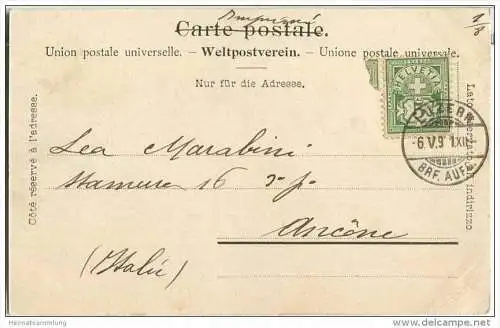 Carte postale.
1/8
Union postale universelle. – Weltpostverein. – Unione postale universale.
Nur für die Adresse.
Côté réservé à l'adresse.
Lato riservato all' indirizzo
HELVETIA
LUZERN
6.V.9 XII
BRF. AUFG.
Lea Marabini
16
Ancône
(Italie)
Heimatsammlung
www.ansichtskartenversand.com
delcampe.net